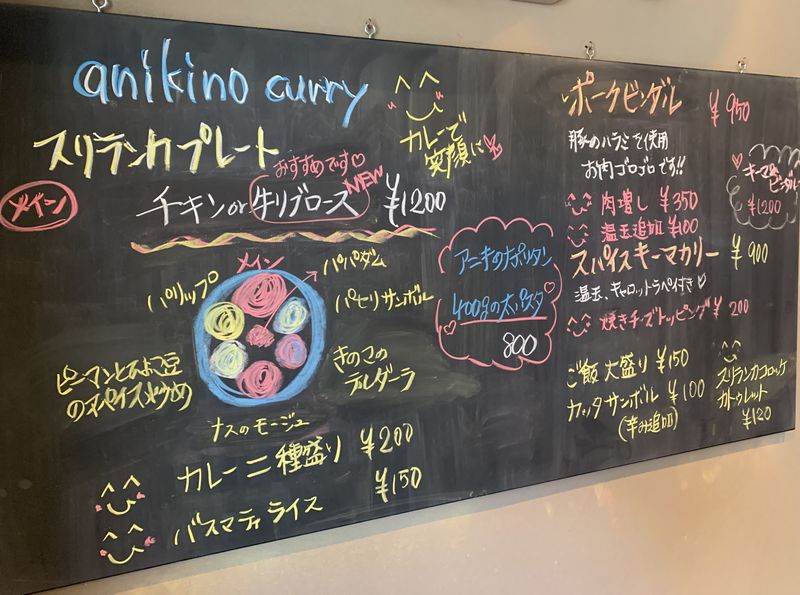 anikino curry
カレーで
笑顔に
スリランカプレート
おすすめです♡
メイン
チキンor牛リブロース
NEW
¥1200
メイン
パパダム
パリップ
パセリサンボル
ピーマンとひよこ豆
のスパイス炒め
きのこの
デルダーラ
ナスのモージュ
カレー二種盛り ¥200
バスマティライス ¥150
アニキのナポリタン
400gの太パスタ
800
ポークビンダル ¥950
豚のハラミを使用
お肉ゴロゴロです!!
肉増し ¥350
温玉追加 ¥100
キーマ&
ビンダル
¥1200
スパイスキーマカリー ¥900
温玉、キャロットラペ付き♡
焼きチーズトッピング ¥200
ご飯大盛り ¥150
カッタサンボル ¥100
(辛み追加)
スリランカコロッケ
カトゥレット
¥120